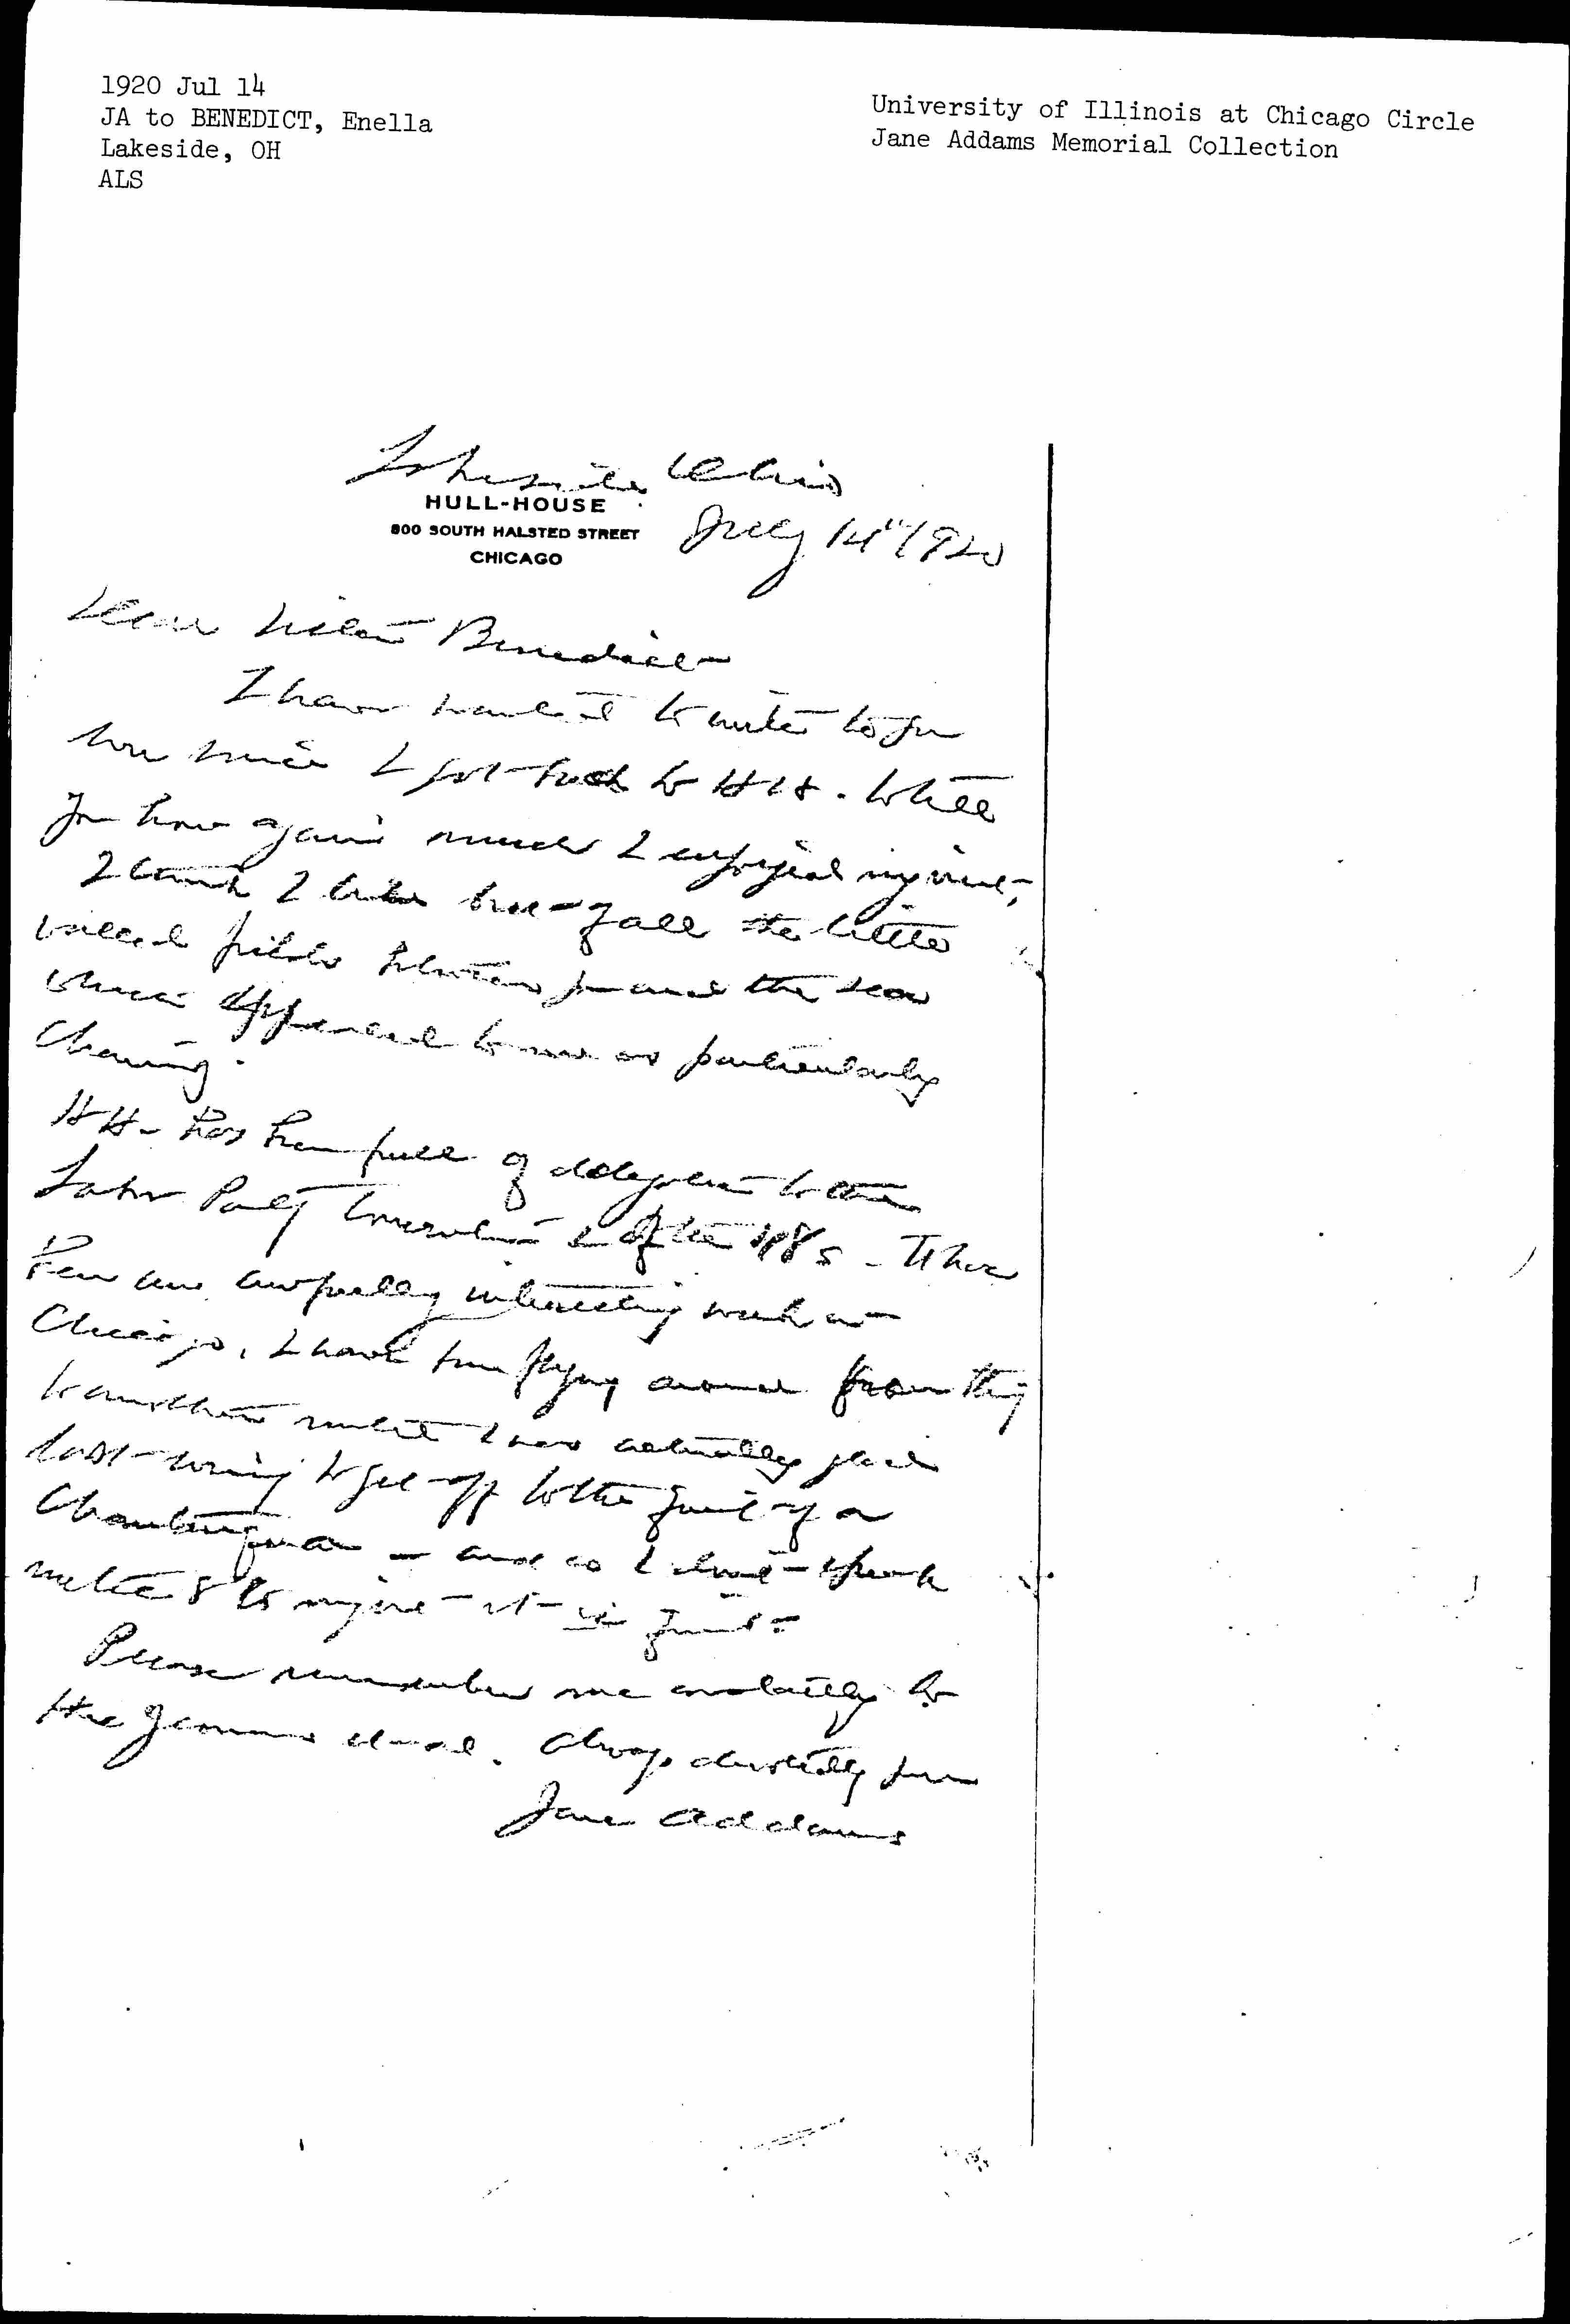 1920 Jul 14
JA to BENEDICT, Enella
Lakeside, OH
ALS
University of Illinois at Chicago Circle
Jane Addams Memorial Collection
Lakeside Ohio
HULL-HOUSE
800 SOUTH HALSTED STREET
CHICAGO
July 14" 1920
Dear Sister Benedict
I have wanted to write to you
ever since I got back to H H. to tell
you how again much I enjoyed my visit,
I think I like best of all the little
walled fields between you and the sea
which appealed to me as particularly
charming.
H H - has been full of delegates to the
Labor Party Convention & of the 48s - It has
been an awfully interesting week in
Chicago, I have been flying around from thing
to another until I was actually glad
last evening to get off to the quiet of a
Chautauqua - and as I don't speak
until 8 to night it is quiet -
Please remember me cordially to
the Always devotedly yours
Jane Addams